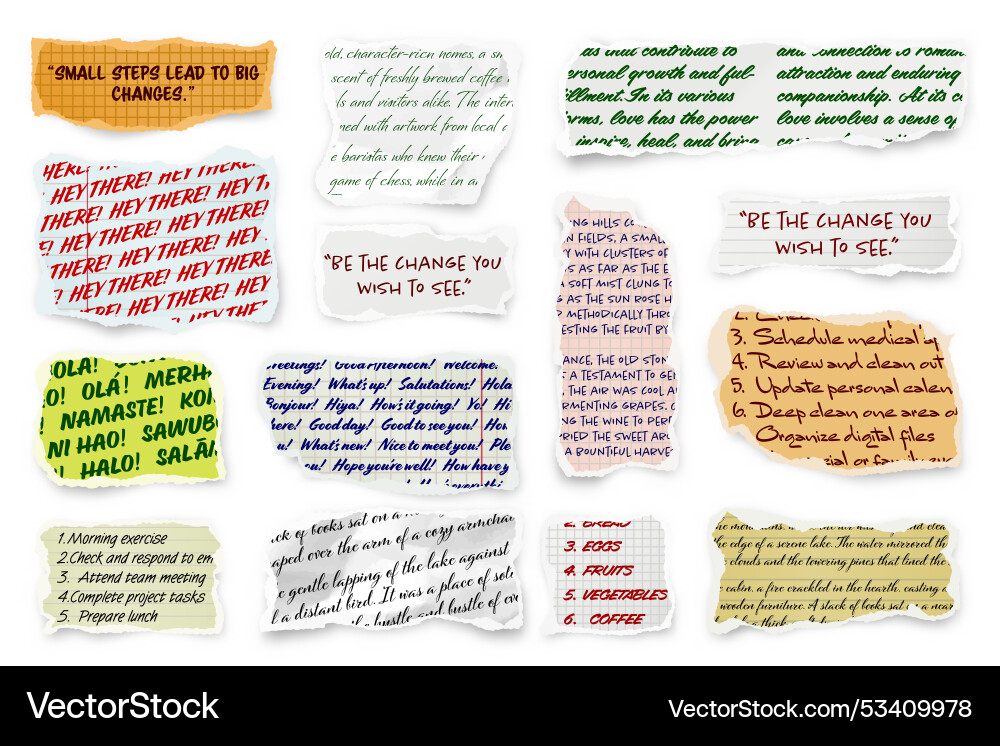 “SMALL STEPS LEAD TO BIG
CHANGES.”
old, character-rich homes, a
scent of freshly brewed coffee
and visitors alike. The
with artwork from local
baristas who knew their
game of chess, while in
as that contribute to
ersonal growth and ful-
illment.In its various
orms, love has the power
inspire, heal, and bring
and connection to
attraction and enduring
companionship. At its
love involves a sense of
HEY THERE! HEY THERE!
HEY THERE! HEY THERE!
THERE! HEY THERE! HEY
HEY THERE! HEY THERE!
THERE! HEY THERE! HEY
HEY THERE! HEY THERE!
! HEY THERE! HEY THERE!
HEY THERE! HEY THE
“BE THE CHANGE YOU
WISH TO SEE.”
NG HILLS
N FIELDS, A SMALL
Y WITH CLUSTERS OF
S AS FAR AS THE E
A SOFT MIST CLUNG TO
G AS THE SUN ROSE H
METHODICALLY
ESTING THE FRUIT BY
ANCE, THE OLD STON
A TESTAMENT TO
THE AIR WAS COOL
RMENTING GRAPES.
G THE WINE TO
RIED THE SWEET
A BOUNTIFUL HARVE
“BE THE CHANGE YOU
WISH TO SEE.”
OLA!
O! OLÁ! MERH
NAMASTE! KO
NI HAO! SAWUB
! HALO! SALĀ
reetings! Good afternoon! Welcome!
Evening! What's up! Salutations! Hola
Bonjour! Hiya! How's it going! Yo! Hi
here! Good day! Good to see you!
u! What's new! Nice to meet you! Ple
ou! Hope you're well! How have y
3. Schedule medical
4. Review and clean out
5. Update personal calen
6. Deep clean one area o
Organize digital files
1.Morning exercise
2.Check and respond to em
3. Attend team meeting
4.Complete project tasks
5. Prepare lunch
ck of books sat on a
aped over the arm of a cozy armchai
gentle lapping of the lake against
a distant bird. It was a place of
hustle and bustle of
2. BREAD
3. EGGS
4. FRUITS
5. VEGETABLES
6. COFFEE
the mountains,
the edge of a serene lake. The water mirrored th
clouds and the towering pines that lined the
cabin, a fire crackled in the hearth, casting a
wooden furniture. A stack of books sat on a near
VectorStock®
VectorStock.com/53409978